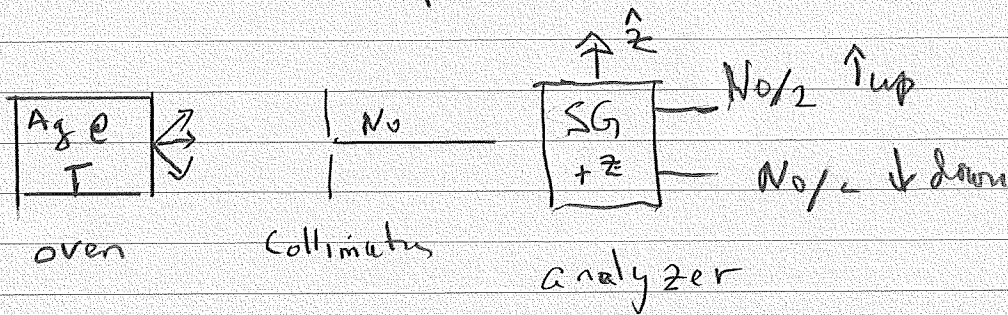 ẑ
Ag @
T
N₀
SG
+z
N₀/2 ↑ up
N₀/2 ↓ down
oven
Collimator
analyzer